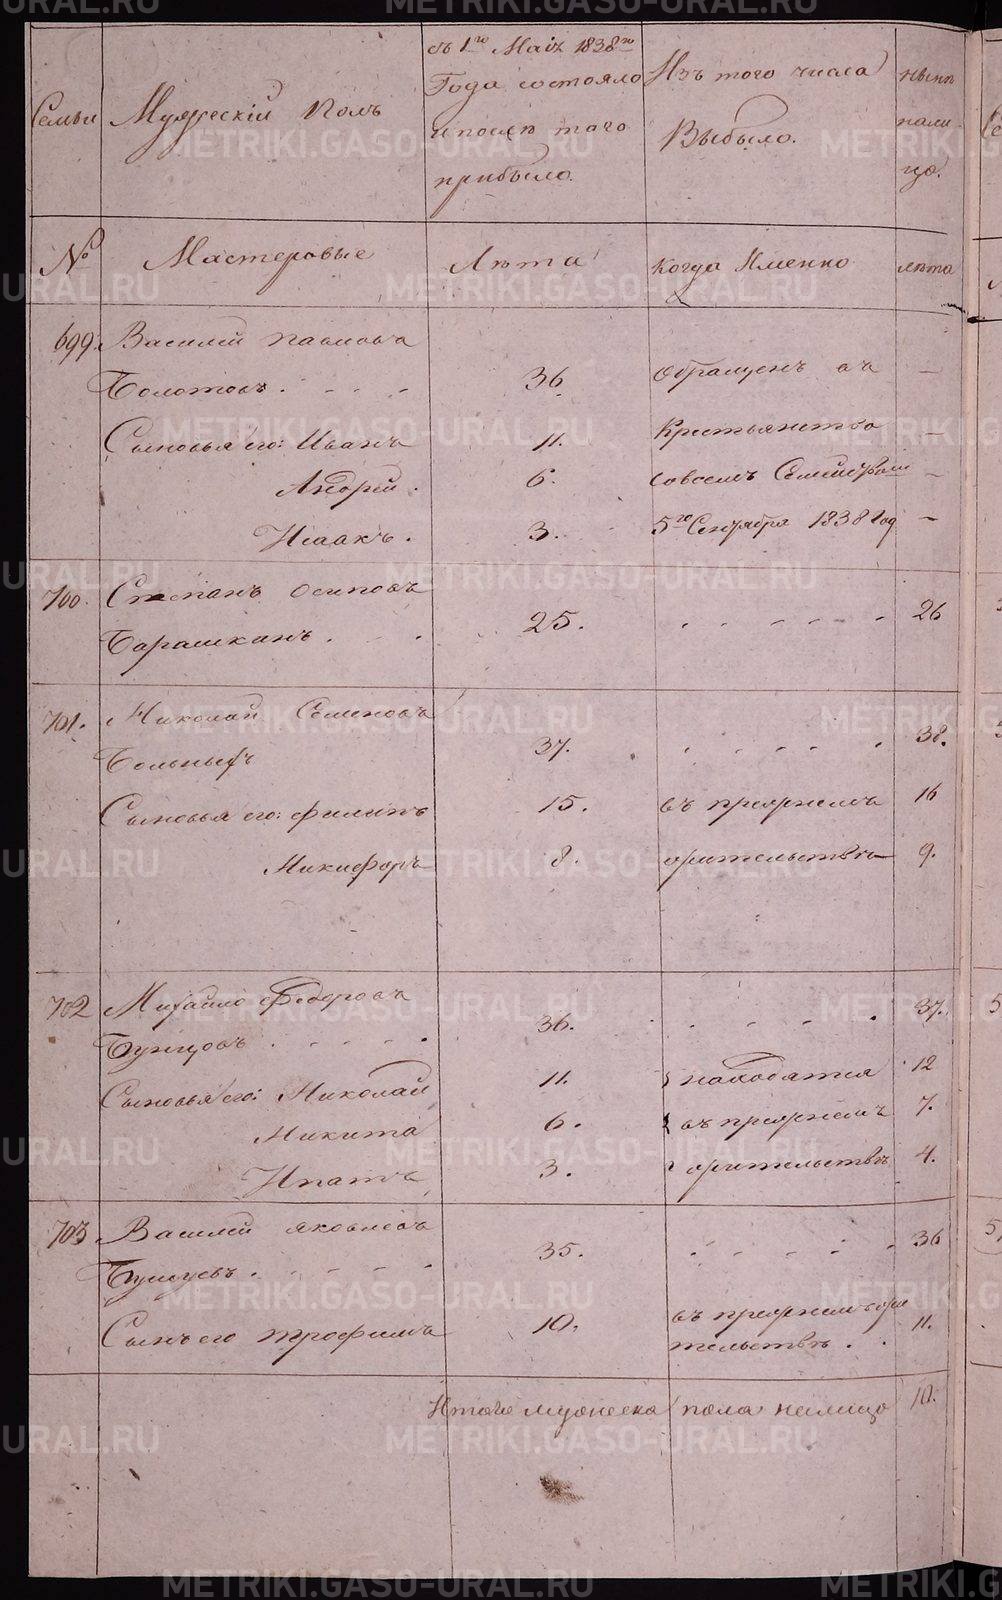 Семьи
Мужескiй Полъ
съ 1го Маiя 1838го
Года состояло
и после того
прибыло.
Изъ того числа
Выбыло.
ныне
нали
цо.
№
Мастеровые
Лета
Когда Именно
лета
699. Василiй Павловъ
Болотовъ . . . . 36 обращенъ въ —
Сыновья его: Иванъ 11. Крестьянство —
Андрей . 6. совсемъ Семействомъ —
Исаакъ . 3. 5го Сентября 1838 Год —
700. Степанъ Осиповъ
Барашкинъ . . . 25. . . . . . 26
701. Николай Семеновъ
Больныхъ 37. . . . . . 38.
Сыновья его: Филипъ 15. въ прежнемъ 16
Никифоръ 8. жительстве 9.
702 Михайло Федоровъ
Бунцовъ . . . . . 36. . . . . . 37.
Сыновья его: Николай 11. находятся 12
Микита 6. въ прежнемъ 7.
Ипатъ 3. жительстве 4.
703 Василiй Яковлевъ
. . . . . 35. . . . . . 36
Сынъ его Трофимъ 10. въ прежнем жи 11.
тельстве . .
Итого мужеска пола налицо 10.
METRIKI.GASO-URAL.RU